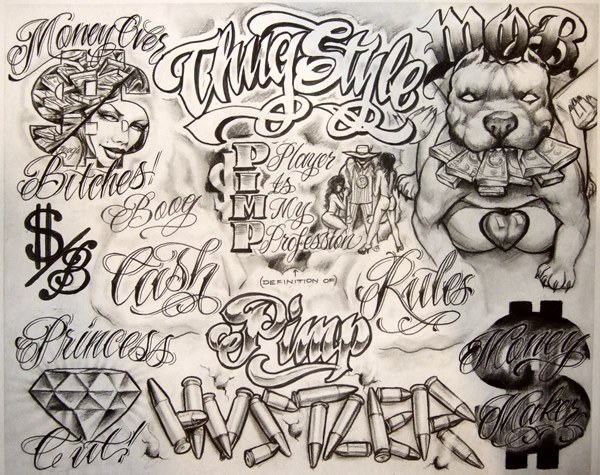 Money Over
Bitches!
Thug Style
MOB
$/B
Boog
PIMP
Player
Is
My
Profession
(DEFINITION OF)
Pimp
Cash
Rules
Princess
Cut!
HUSTLER
Money
Maker